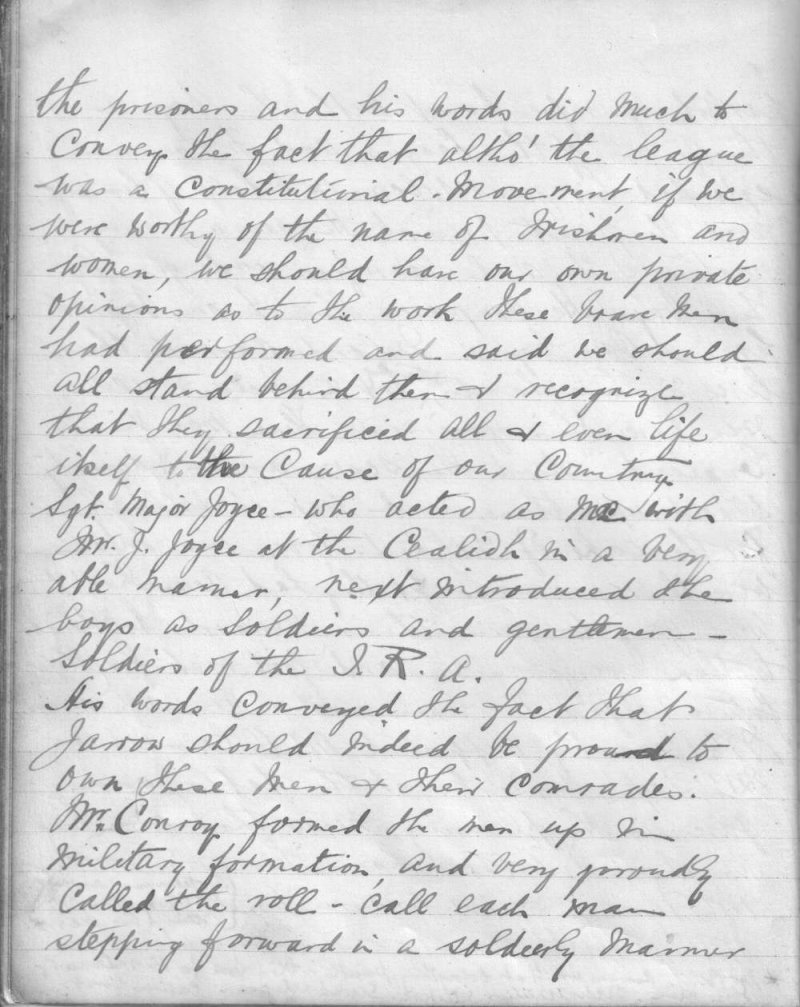 the prisoners and his words did much to
Convey the fact that altho' the league
was a Constitutional Movement, if we
were worthy of the name of Irishmen and
women, we should have our own private
opinions as to the work these brave men
had performed and said we should
all stand behind them & recognize
that they sacrificed all & even life
itself to the Cause of our Country
Sgt. Major Joyce - who acted as MC with
Mr. J. Joyce at the Cealidh in a very
able manner, next introduced the
boys as Soldiers and gentlemen -
Soldiers of the I. R. A.
His words conveyed the fact that
Jarrow should indeed be proud to
own these men & their comrades.
Mr. Conroy formed the men up in
military formation, and very proudly
Called the roll - call each man
stepping forward in a soldierly manner